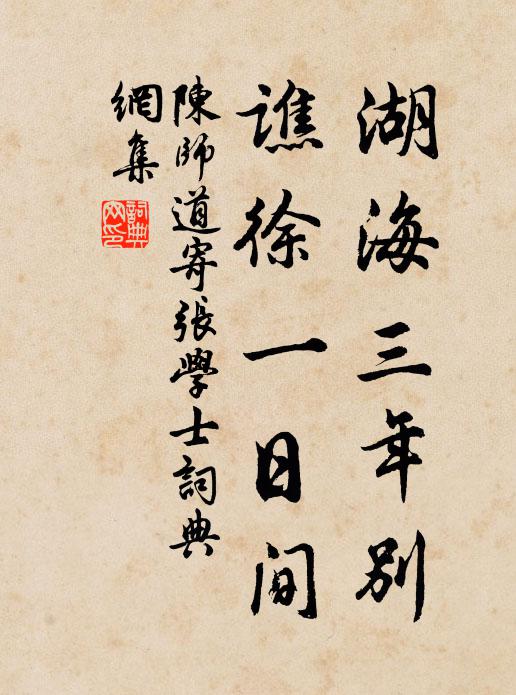 湖海三年别
譙徐一日间
陳師道寄張學士詞典
網集
詞典
网印